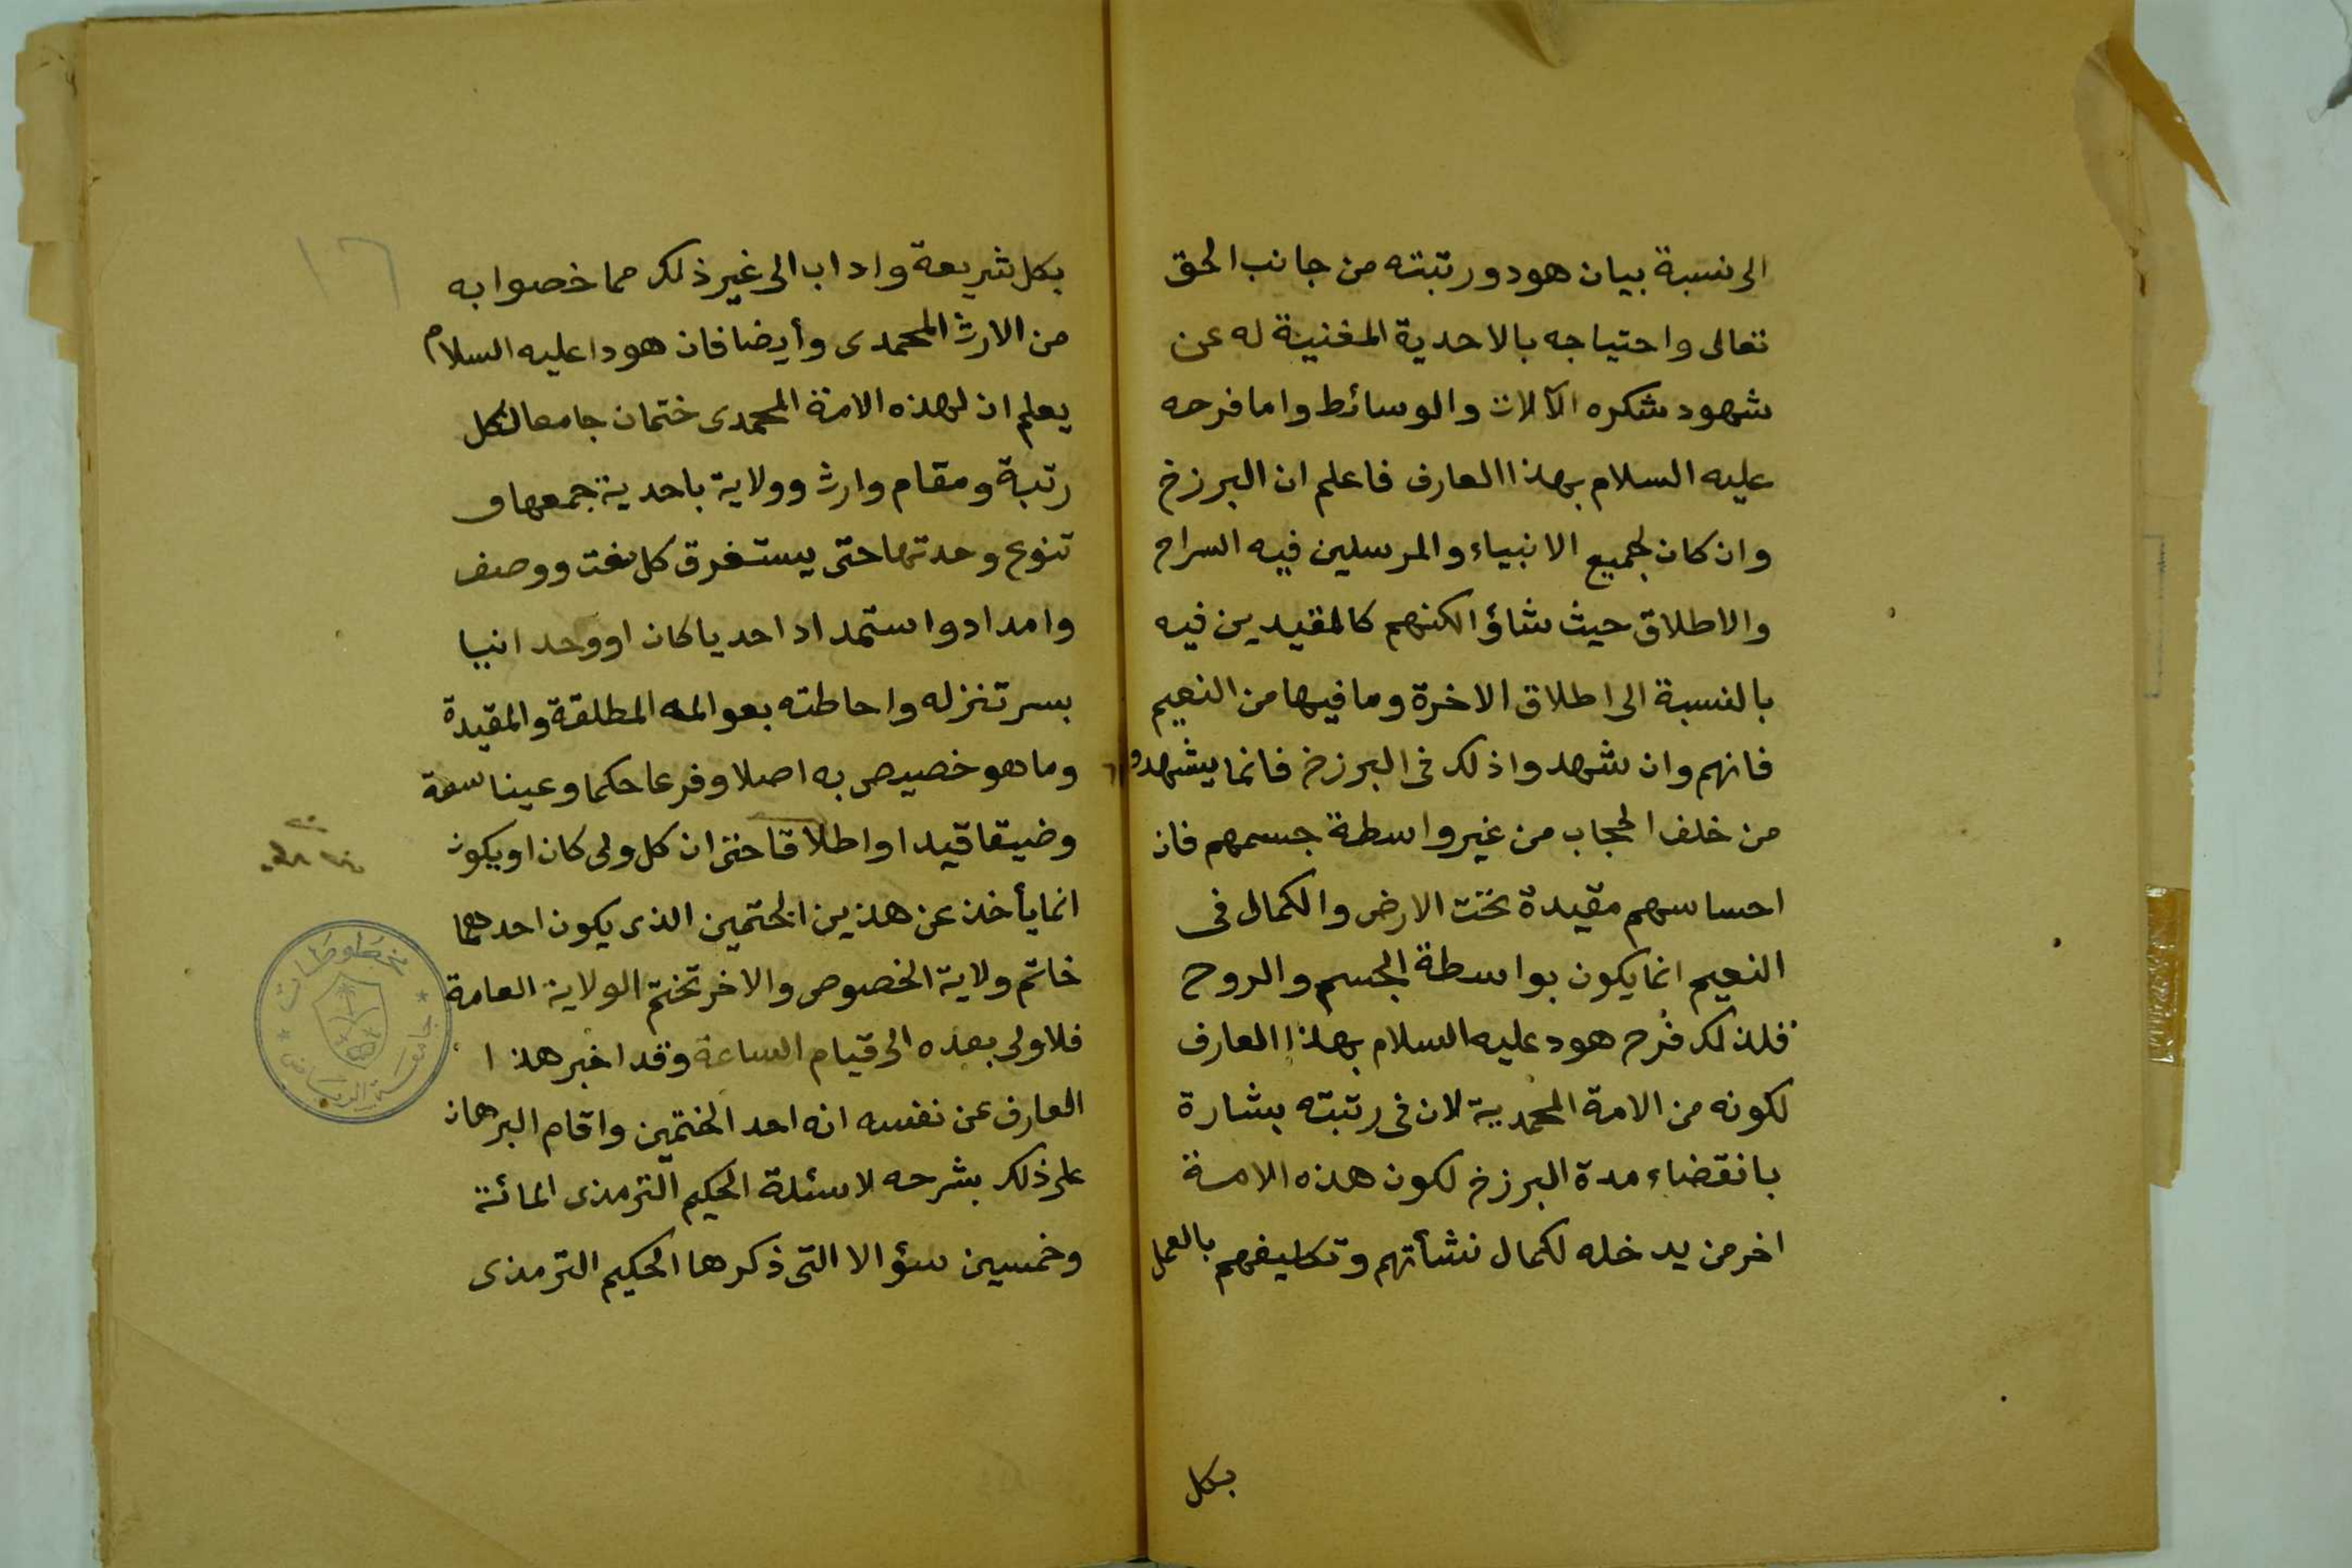 الى نسبة بيان هود ورتبته من جانب الحق
تعالى واحتياجه بالاحدية المغنية له عن
شهود شكره الآلات والوسائط واما فرحه
عليه السلام بهذا العارف فاعلم ان البرزخ
وان كان لجميع الانبياء والمرسلين فيه السراح
والاطلاق حيث شاؤا لكنهم كالمقيدين فيه
بالنسبة الى اطلاق الاخرة وما فيها من النعيم
فانهم وان شهدوا ذلك فى البرزخ فانما يشهدو
من خلف الحجاب من غير واسطة جسمهم فان
احساسهم مقيدة تحت الارض والكمال فى
النعيم انما يكون بواسطة الجسم والروح
فلذلك فرح هود عليه السلام بهذا العارف
لكونه من الامة المحمدية لان فى رتبته بشارة
بانقضاء مدة البرزخ لكون هذه الامة
اخر من يدخله لكمال نشأتهم وتكليفهم بالعمل
بكل
١٦
بكل شريعة واداب الى غير ذلك مما خصوا به
من الارث المحمدى وأيضا فان هودا عليه السلام
يعلم ان لهذه الامة المحمدى ختمان جامعا لكل
رتبة ومقام وارث وولاية باحدية جمعها و
تنوع وحدتها حتى يستغرق كل نعت ووصف
وامداد واستمداد احديا كان او وحدانيا
بسر تنزله واحاطته بعوالمه المطلقة والمقيدة
وما هو خصيص به اصلا وفرعا حكما وعينا سعة
وضيقا قيدا واطلاقا حتى ان كل ولى كان او يكون
انما يأخذ عن هذين الختمين الذى يكون احدهما
خاتم ولاية الخصوص والاخر تختم الولاية العامة
فلا ولى بعده الى قيام الساعة وقد اخبر هذا
العارف عن نفسه انه احد الختمين واقام البرهان
على ذلك بشرحه لاسئلة الحكيم الترمذى المائة
وخمسين سؤالا التى ذكرها الحكيم الترمذى
جامعة الرياض
مخطوطات